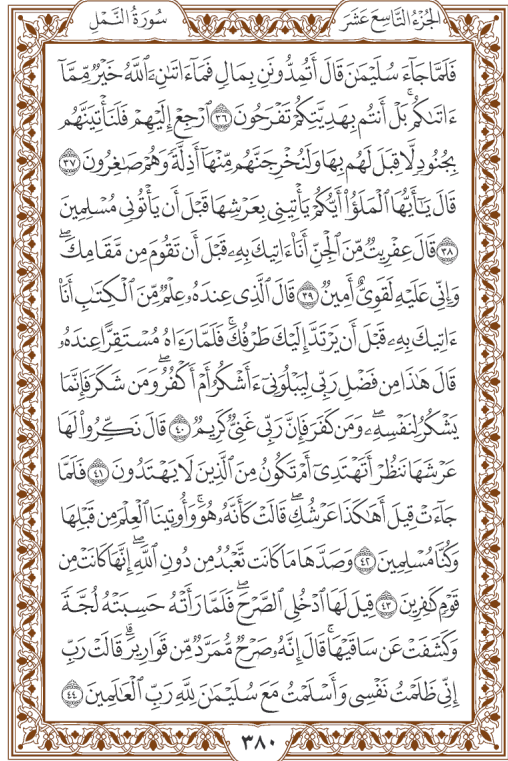 الجُزْءُ التَّاسِعَ عَشَرَ سُورَةُ النَّمْلِ
فَلَمَّا جَآءَ سُلَيْمَٰنَ قَالَ أَتُمِدُّونَنِ بِمَالٍ فَمَآ ءَاتَىٰنِۦَ ٱللَّهُ خَيْرٌ مِّمَّآ
ءَاتَىٰكُم ۚ بَلْ أَنتُم بِهَدِيَّتِكُمْ تَفْرَحُونَ ٣٦ ٱرْجِعْ إِلَيْهِمْ فَلَنَأْتِيَنَّهُم
بِجُنُودٍ لَّا قِبَلَ لَهُم بِهَا وَلَنُخْرِجَنَّهُم مِّنْهَآ أَذِلَّةً وَهُمْ صَٰغِرُونَ ٣٧
قَالَ يَٰٓأَيُّهَا ٱلْمَلَؤُا۟ أَيُّكُمْ يَأْتِينِى بِعَرْشِهَا قَبْلَ أَن يَأْتُونِى مُسْلِمِينَ
٣٨ قَالَ عِفْرِيتٌ مِّنَ ٱلْجِنِّ أَنَا۠ ءَاتِيكَ بِهِۦ قَبْلَ أَن تَقُومَ مِن مَّقَامِكَ ۖ
وَإِنِّى عَلَيْهِ لَقَوِىٌّ أَمِينٌ ٣٩ قَالَ ٱلَّذِى عِندَهُۥ عِلْمٌ مِّنَ ٱلْكِتَٰبِ أَنَا۠
ءَاتِيكَ بِهِۦ قَبْلَ أَن يَرْتَدَّ إِلَيْكَ طَرْفُكَ ۚ فَلَمَّا رَءَاهُ مُسْتَقِرًّا عِندَهُۥ
قَالَ هَٰذَا مِن فَضْلِ رَبِّى لِيَبْلُوَنِىٓ ءَأَشْكُرُ أَمْ أَكْفُرُ ۖ وَمَن شَكَرَ فَإِنَّمَا
يَشْكُرُ لِنَفْسِهِۦ ۖ وَمَن كَفَرَ فَإِنَّ رَبِّى غَنِىٌّ كَرِيمٌ ٤٠ قَالَ نَكِّرُوا۟ لَهَا
عَرْشَهَا نَنظُرْ أَتَهْتَدِىٓ أَمْ تَكُونُ مِنَ ٱلَّذِينَ لَا يَهْتَدُونَ ٤١ فَلَمَّا
جَآءَتْ قِيلَ أَهَٰكَذَا عَرْشُكِ ۖ قَالَتْ كَأَنَّهُۥ هُوَ ۚ وَأُوتِينَا ٱلْعِلْمَ مِن قَبْلِهَا
وَكُنَّا مُسْلِمِينَ ٤٢ وَصَدَّهَا مَا كَانَت تَّعْبُدُ مِن دُونِ ٱللَّهِ ۖ إِنَّهَا كَانَتْ مِن
قَوْمٍ كَٰفِرِينَ ٤٣ قِيلَ لَهَا ٱدْخُلِى ٱلصَّرْحَ ۖ فَلَمَّا رَأَتْهُ حَسِبَتْهُ لُجَّةً
وَكَشَفَتْ عَن سَاقَيْهَا ۚ قَالَ إِنَّهُۥ صَرْحٌ مُّمَرَّدٌ مِّن قَوَارِيرَ ۗ قَالَتْ رَبِّ
إِنِّى ظَلَمْتُ نَفْسِى وَأَسْلَمْتُ مَعَ سُلَيْمَٰنَ لِلَّهِ رَبِّ ٱلْعَٰلَمِينَ ٤٤
٣٨٠